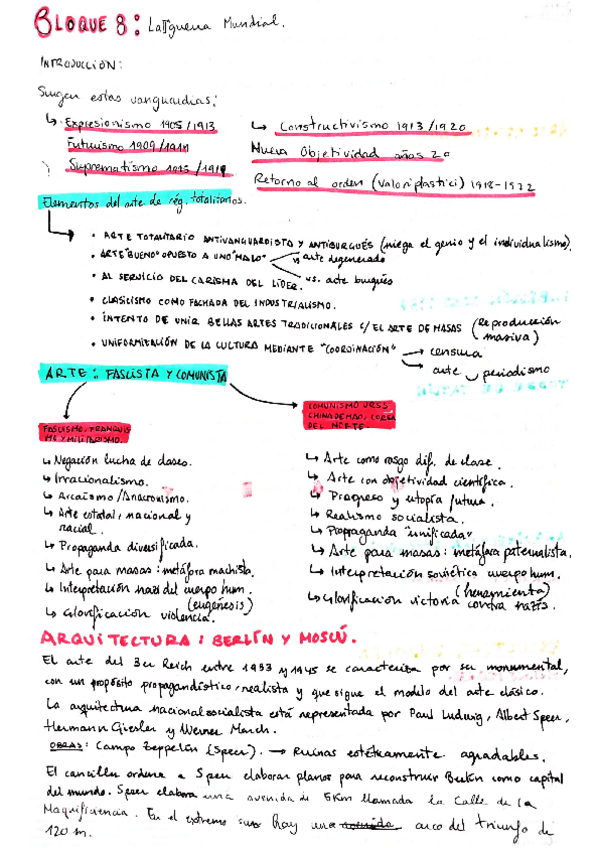 BLOQUE 8: La II guerra Mundial.
INTRODUCCIÓN:
Surgen estas vanguardias:
↳ Expresionismo 1905/1913
Futurismo 1909/1944
Suprematismo 1915/1919
↳ Constructivismo 1913/1920
Nueva Objetividad años 20
Retorno al orden (Valori plastici) 1918-1922
Elementos del arte de rég. totalitarios.
• ARTE TOTALITARIO ANTIVANGUARDISTA Y ANTIBURGUÉS (niega el genio y el individualismo).
• ARTE "BUENO" OPUESTO A UNO "MALO" vs arte degenerado
vs. arte burgués
• AL SERVICIO DEL CARISMA DEL LÍDER.
• CLASICISMO COMO FACHADA DEL INDUSTRIALISMO.
• INTENTO DE UNIR BELLAS ARTES TRADICIONALES C/ EL ARTE DE MASAS (Reproducción masiva)
• UNIFORMIZACIÓN DE LA CULTURA MEDIANTE "COORDINACIÓN" → censura
→ arte periodismo
ARTE: FASCISTA Y COMUNISTA
FASCISMO, FRANQUIS
MO Y MILITARISMO.
↳ Negación lucha de clases.
↳ Irracionalismo.
↳ Arcaísmo/Anacronismo.
↳ Arte estatal, nacional y
racial.
↳ Propaganda diversificada.
↳ Arte para masas: metáfora machista.
↳ Interpretación nazi del cuerpo hum.
(eugénesis)
↳ Glorificación violencia.
COMUNISMO URSS,
CHINA DE MAO, COREA
DEL NORTE.
↳ Arte como rasgo dif. de clase.
↳ Arte con objetividad científica.
↳ Progreso y utopía futura.
↳ Realismo socialista.
↳ Propaganda "unificada"
↳ Arte para masas: metáfora paternalista.
↳ Interpretación soviética cuerpo hum.
(herramienta)
↳ Glorificación victoria contra nazis.
ARQUITECTURA: BERLÍN Y MOSCÚ.
El arte del 3er Reich entre 1933 y 1945 se caracteriza por ser monumental,
con un propósito propagandístico, realista y que sigue el modelo del arte clásico.
La arquitectura nacionalsocialista está representada por Paul Ludwig, Albert Speer,
Hermann Giesler y Werner March.
OBRAS: Campo Zeppelin (Speer). → Ruinas estéticamente agradables.
El canciller ordena a Speer elaborar planos para reconstruir Berlín como capital
del mundo. Speer elabora una avenida de 5Km llamada la Calle de la
Magnificiencia. En el extremo sur hay una arco del triunfo de
120 m.